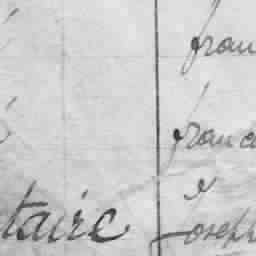 fran
franc
&
taire Joseph